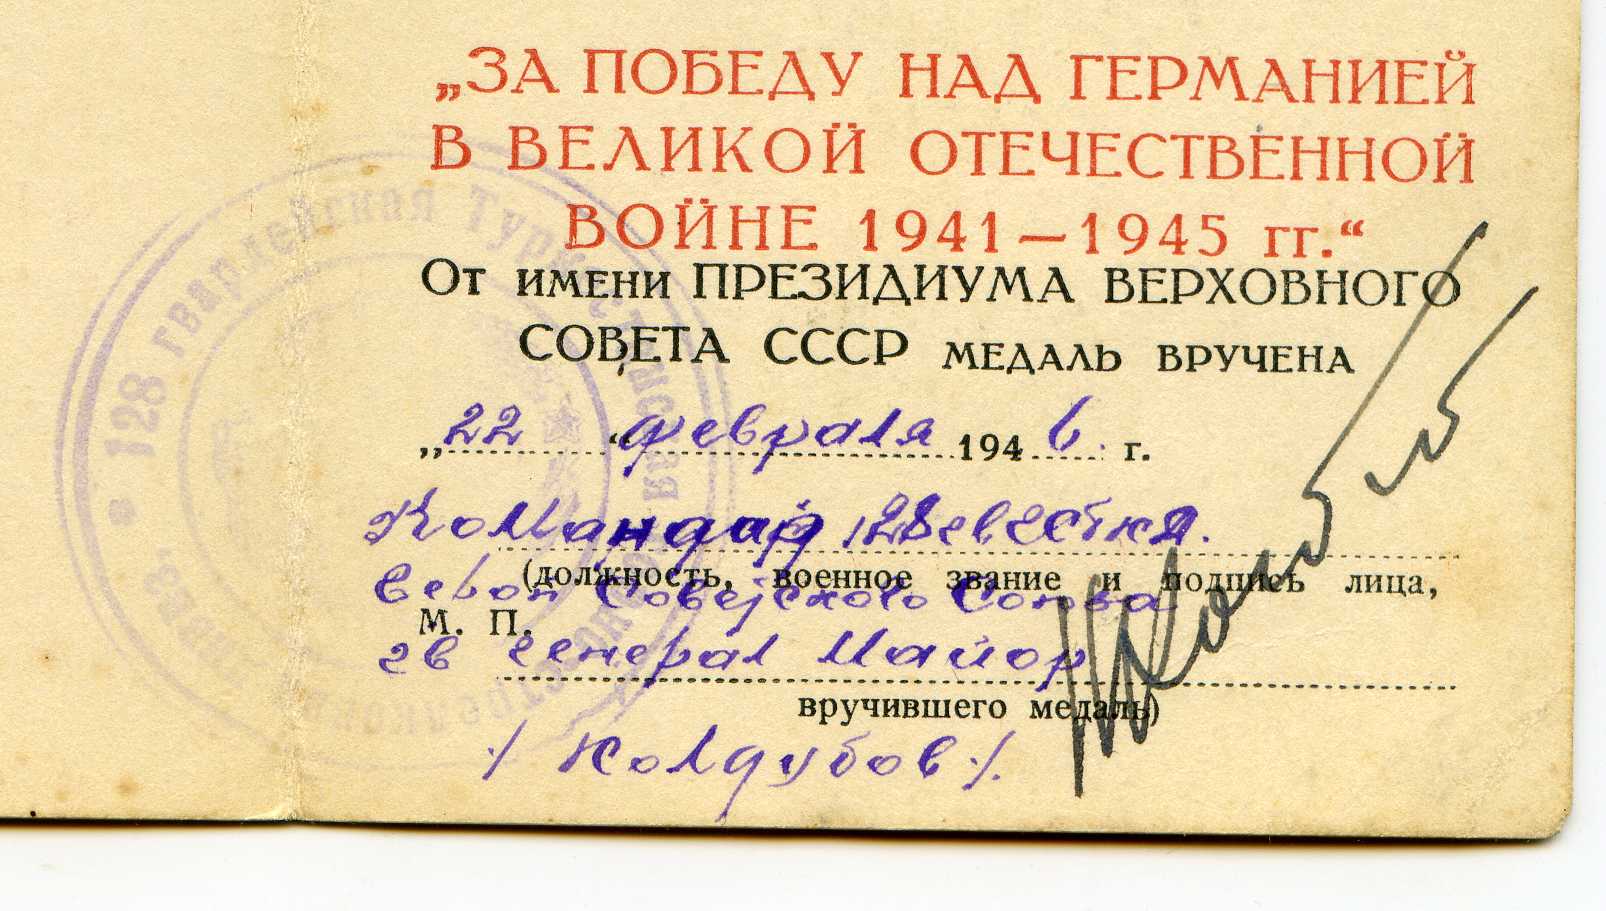 „ЗА ПОБЕДУ НАД ГЕРМАНИЕЙ
В ВЕЛИКОЙ ОТЕЧЕСТВЕННОЙ
ВОЙНЕ 1941—1945 гг.“
От имени ПРЕЗИДИУМА ВЕРХОВНОГО
СОВЕТА СССР МЕДАЛЬ ВРУЧЕНА
„22“ февраля 1946 г.
Командир 128
(должность, военное звание и подпись лица,
Герой Советского Союза
М. П.
гв генерал майор
вручившего медаль)
/Колдубов/.
128 гвардейская